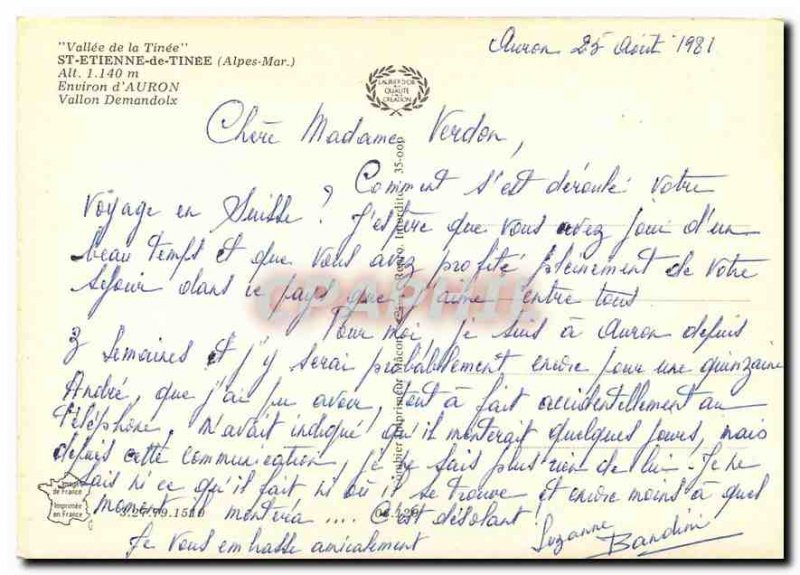 "Vallée de la Tinée"
ST-ETIENNE-de-TINÉE (Alpes-Mar.)
Alt. 1.140 m
Environ d'AURON
Vallon Demandolx
Auron 25 Août 1981
LAURIER D'OR
DE LA
QUALITÉ
DE LA
CRÉATION
Chère Madame Verdon,
Comment s'est déroulé votre
voyage en Suisse ? J'espère que vous avez joui d'un
beau temps et que vous avez profité pleinement de votre
séjour dans ce pays que j'aime entre tous
Pour moi, je suis à Auron depuis
3 semaines et j'y serai probablement encore pour une quinzaine
André, que j'ai pu avoir, tout à fait accidentellement au
téléphone, m'avait indiqué qu'il monterait quelques jours, mais
depuis cette communication, je ne sais plus rien de lui - Je ne
sais ni ce qu'il fait ni où il se trouve et encore moins à quel
moment il montera .... C'est désolant !
Je vous embrasse amicalement
Suzanne
Bandini
Combier Imprimeur Mâcon Repro. Interdite 35-009
Images
de France
Imprimée
en France
3.26.79.1510
CPAPHIL